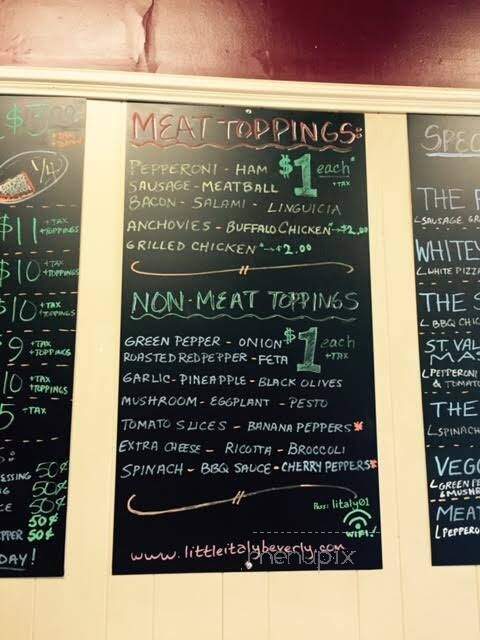 $3.00
1/4
$11 + TAX + TOPPINGS
$10 + TAX + TOPPINGS
$10 + TAX + TOPPINGS
9 + TAX + TOPPINGS
10 + TAX + TOPPINGS
5 - TAX
ESSING 50¢
NG 50¢
CE 50¢
50¢
PPER 50¢
DAY!
MEAT TOPPINGS:
PEPPERONI - HAM $1 each*
SAUSAGE - MEATBALL + TAX
BACON - SALAMI - LINGUICIA
ANCHOVIES - BUFFALO CHICKEN → $2.00
GRILLED CHICKEN* → $2.00
NON-MEAT TOPPINGS
GREEN PEPPER - ONION $1 each
ROASTED RED PEPPER - FETA + TAX
GARLIC - PINEAPPLE - BLACK OLIVES
MUSHROOM - EGGPLANT - PESTO
TOMATO SLICES - BANANA PEPPERS*
EXTRA CHEESE - RICOTTA - BROCCOLI
SPINACH - BBQ SAUCE - CHERRY PEPPERS*
Pass: litaly01
WIFI!
www.littleitalybeverly.com
menupix
SPEC
THE
SAUSAGE GR
WHITEY
WHITE PIZZA
THE S
BBQ CHIC
ST. VAL
MAS
PEPPERONI
& TOMATO
THE
SPINACH
VEGG
GREEN PE
& MUSHR
MEAT
PEPPERO